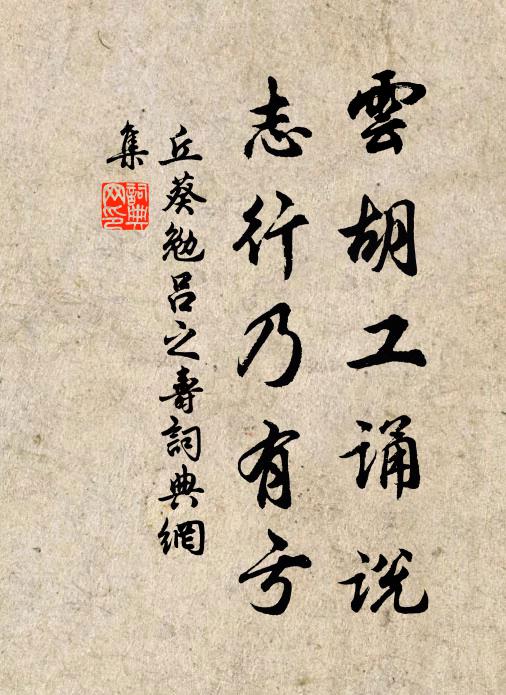 雲胡工誦說
志行乃有亏
丘葵勉呂之壽詞典網
集
詞典
网印